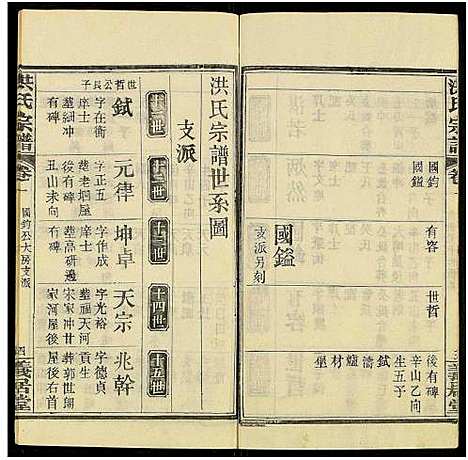 洪氏宗譜
卷一
三
義居堂
國鈞
國鎰
有容
世哲
後有碑
辛山乙向
生五子
鉽
濤
爐
材
壆
國鎰
支派另刻
洪氏宗譜世系圖
支派
十一世
十二世
十三世
十四世
十五世
世哲公長子
鉽
字在衡
庠士
墓細冲
有碑
元律
字正五
墓老垌屋
後有碑
丑山未向
坤卓
字作成
庠士
墓高研邊
有碑
天宗
字光裕
墓福天河
宋家冲廿
家河屋後
兆幹
字德貞
貢生
葬郭世閣
家屋後
洪氏宗譜
卷一
國鈞公大房支派
四
義居堂